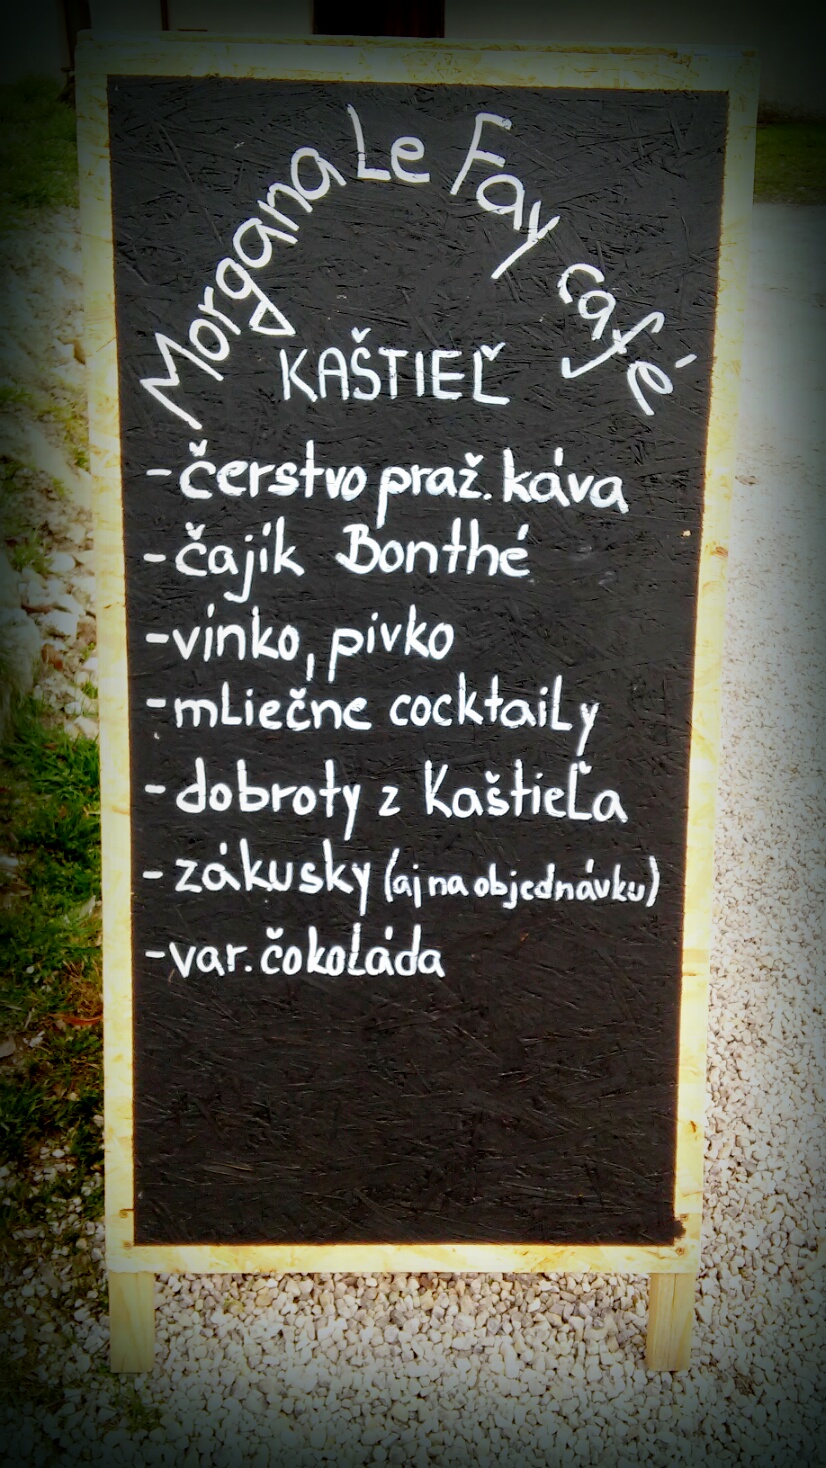 Morgana Le Fay café
KAŠTIEĽ
-čerstvo praž. káva
-čajík Bonthé
-vínko, pivko
-mliečne cocktaily
-dobroty z Kaštieľa
-zákusky (aj na objednávku)
-var. čokoláda